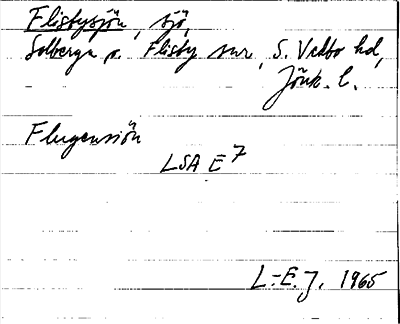 Flisbysjön, sjö,
Solberga o. Flisby snr, S. Vedbo hd,
Jönk. l.
Flugensiön
LSA E 7
L.-E. J. 1965